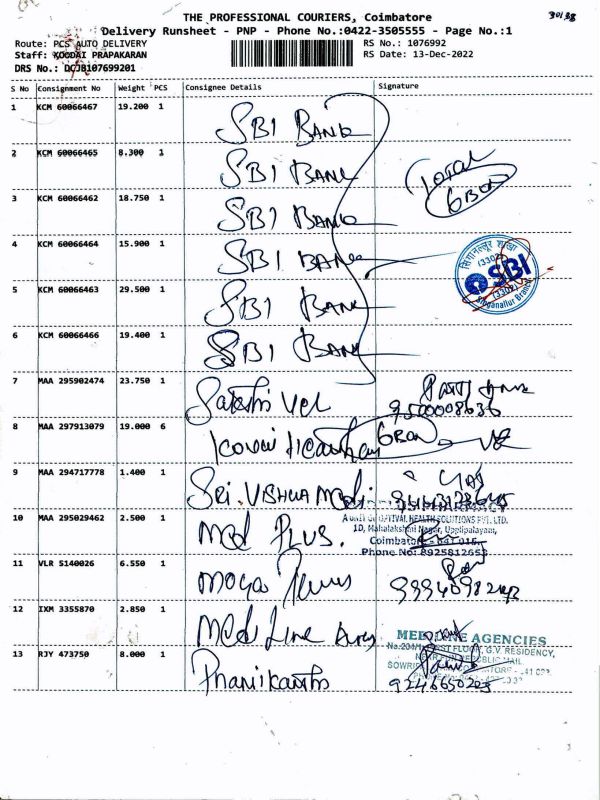 THE PROFESSIONAL COURIERS, Coimbatore
Delivery Runsheet - PNP - Phone No.:0422-3505555 - Page No.:1
Route: PCS AUTO DELIVERY
RS No.: 1076992
Staff: KOODAI PRAPAKARAN
RS Date: 13-Dec-2022
DRS No.: DCJB107699201
S No Consignment No Weight PCS Consignee Details Signature
1 KCM 60066467 19.200 1 SBI Bank
2 KCM 60066465 8.300 1 SBI Bank
Total
6 Box
3 KCM 60066462 18.750 1 SBI Bank
4 KCM 60066464 15.900 1 SBI Bank
सिंगानल्लूर शाखा
(3302)
SBI
(3302)
Singanallur Branch
5 KCM 60066463 29.500 1 SBI Bank
6 KCM 60066466 19.400 1 SBI Bank
7 MAA 295902474 23.750 1 Sakthi Vel
9500008636
8 MAA 297913079 19.000 6 6 Box
9 MAA 294717778 1.400 1 Sri Vishwa
10 MAA 295029462 2.500 1 Med Plus.
A unit of OPTIVAL HEALTH SOLUTIONS PVT. LTD.
1D, Mahalakshmi Nagar, Upplipalayam,
Coimbatore - 641 015.
Phone No: 8925812653
11 VLR 5140026 6.550 1
12 IXM 3355870 2.850 1 Med Line
MEDLINE AGENCIES
FIRST FLOOR, G.V. RESIDENCY,
13 RJY 473750 8.000 1 Phanikanth
9246650205